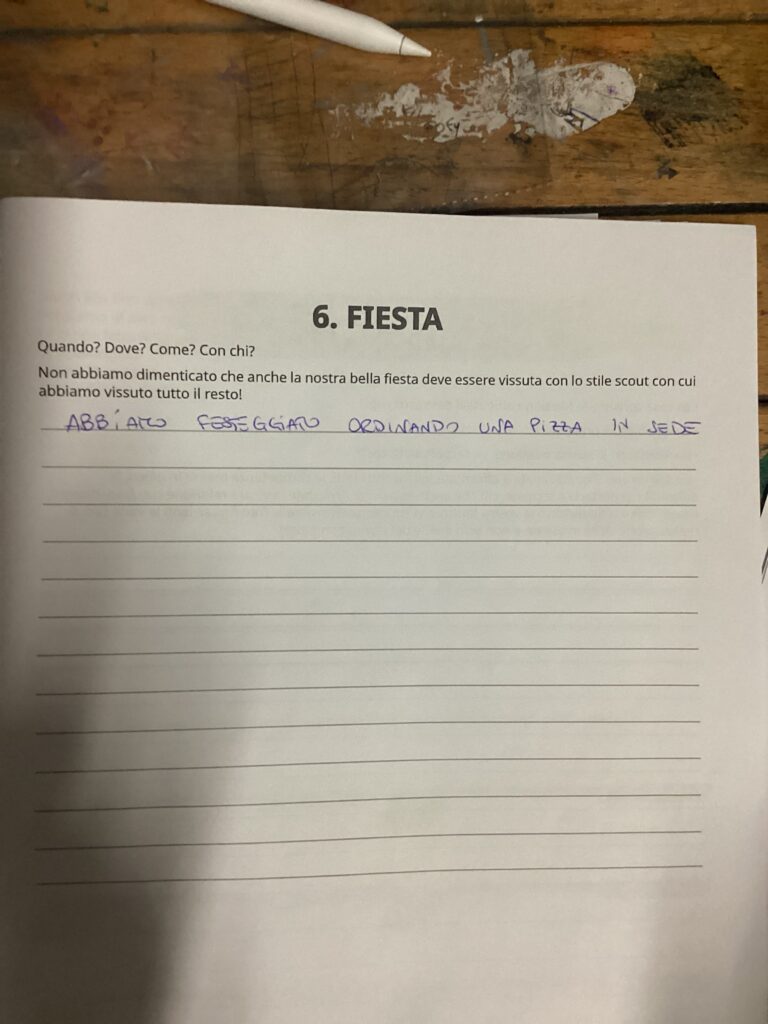 6. FIESTA
Quando? Dove? Come? Con chi?
Non abbiamo dimenticato che anche la nostra bella fiesta deve essere vissuta con lo stile scout con cui
abbiamo vissuto tutto il resto!
ABBiAMO FESTEGGiATO ORDINANDO UNA PiZZA IN SEDE